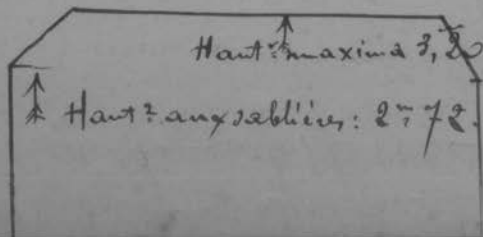 Haut.r maxima 3,20
Haut.r aux sablières: 2m,72.